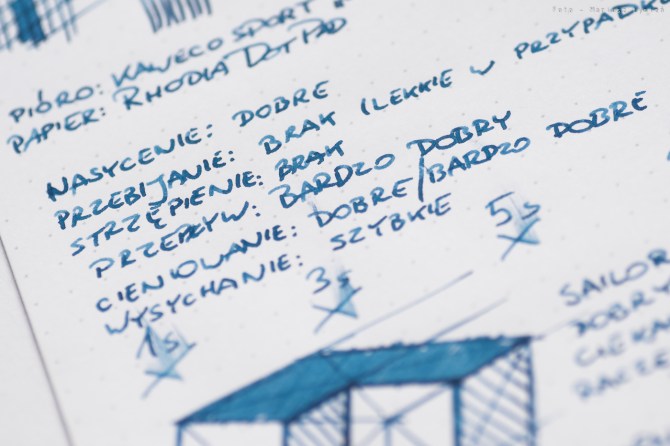 PIÓRO: KAWECO SPORT
PAPIER: RHODIA DOTPAD
NASYCENIE: DOBRE
PRZEBIJANIE: BRAK (LEKKIE W PRZYPADKU
STRZĘPIENIE: BRAK
PRZEPŁYW: BARDZO DOBRY
CIENIOWANIE: DOBRE/BARDZO DOBRE
WYSYCHANIE: SZYBKIE
1s 3s 5s
SAILOR
DOBRY